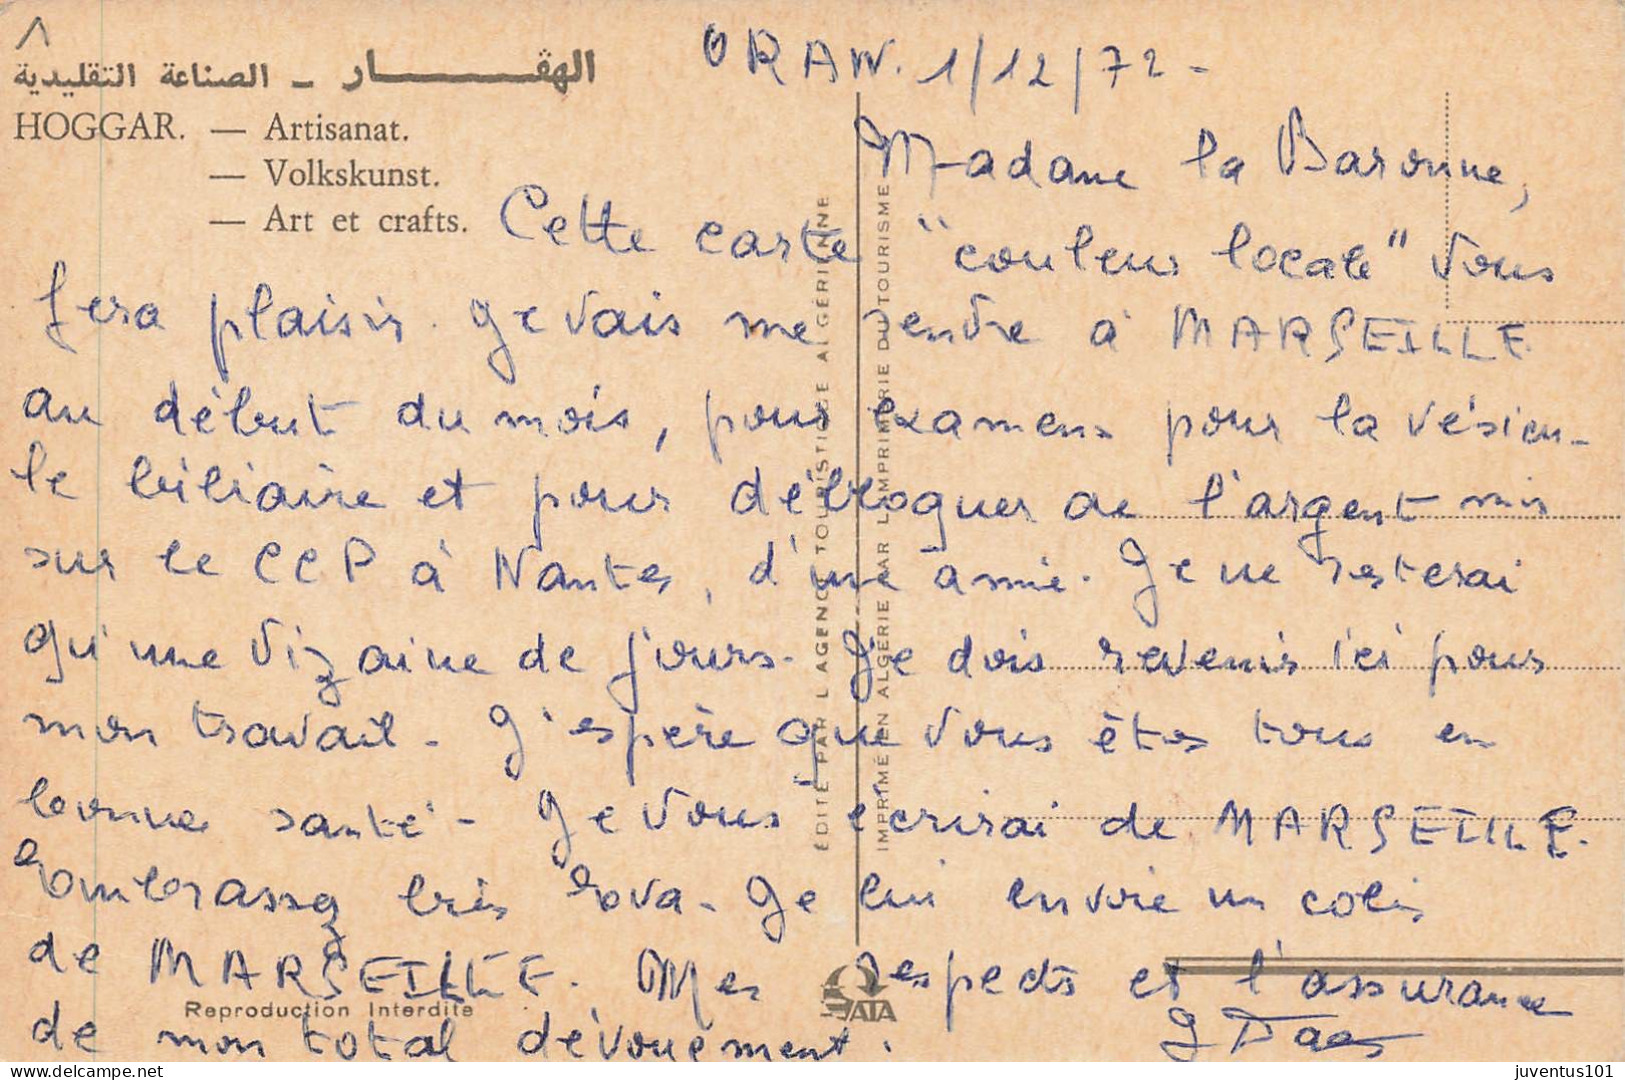 الهڤار ـ الصناعة التقليدية
HOGGAR. — Artisanat.
— Volkskunst.
— Art et crafts.
ORAN. 1/12/72-
Madame la Baronne,
Cette carte "couleur locale" vous
fera plaisir. Je vais me rendre à MARSEILLE
au début du mois, pour examens pour la vésicu-
le biliaire et pour débloquer de l'argent mis
sur le CCP à Nantes, d'une amie. Je ne resterai
qu'une dizaine de jours. Je dois revenir ici pour
mon travail. J'espère que vous êtes tous en
bonne santé. Je vous écrirai de MARSEILLE.
Embrassez très Je lui envoie un colis
de MARSEILLE. Mes respects et l'assurance
de mon total dévouement.
EDITÉ PAR L'AGENCE TOURISTIQUE ALGÉRIENNE
IMPRIMÉ EN ALGÉRIE PAR L'IMPRIMERIE DU TOURISME
Reproduction Interdite
ATA
juventus101